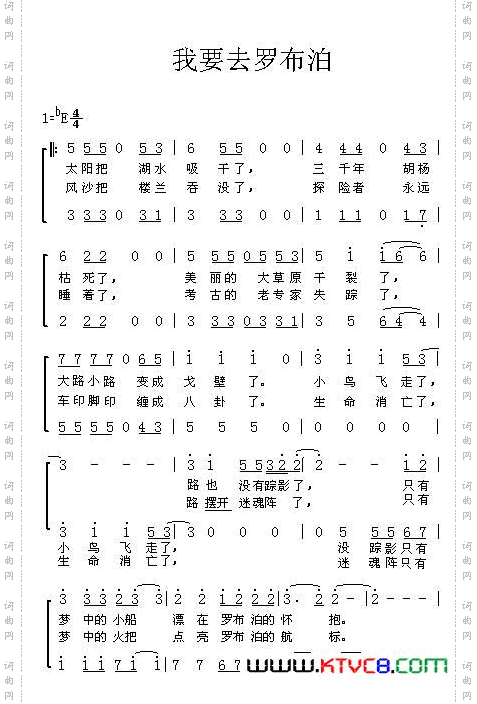 我要去罗布泊
1=bE 4/4
5 5 5 0 5 3 | 6 5 5 0 0 | 4 4 4 0 4 3 |
太阳把 湖水 吸 干了, 三 千年 胡杨
风沙把 楼兰 吞 没了, 探 险者 永远
3 3 3 0 3 1 | 3 3 3 0 0 | 1 1 1 0 1 7
6 2 2 0 0 | 5 5 5 0 5 5 3 | 5 i i 6 6 |
枯 死了, 美 丽的 大草原 干 裂 了,
睡 着了, 考 古的 老专家 失 踪 了,
2 2 2 0 0 | 3 3 3 0 3 3 1 | 3 5 6 4 4 |
7 7 7 7 0 6 5 | i i i 0 | i i i 5 3 |
大路小路 变成 戈 壁 了。 小 鸟 飞 走了,
车印脚印 缠成 八 卦 了。 生 命 消 亡了,
5 5 5 5 0 4 3 | 5 5 5 0 | 0 0 0 0 |
3 - - - | 3 i 5 5 3 2 2 | 2 - - i 2 |
路 也 没有踪影 了, 只有
路 摆开 迷魂阵 了, 只有
3 i i 5 3 | 3 0 0 0 | 0 5 5 5 6 7 |
小 鸟 飞 走了, 没 踪影只有
生 命 消 亡了, 迷 魂阵只有
3 3 3 2 3 3 | 2 2 i 2 2 i 2 | 3 . 2 2 - | 2 - - - |
梦 中的 小船 漂 在 罗布 泊的 怀 抱。
梦 中的 火把 点 亮 罗布 泊的 航 标。
i i i 7 i i | 7 7 7 6 7
WWW.KTVC8.COM
词曲网